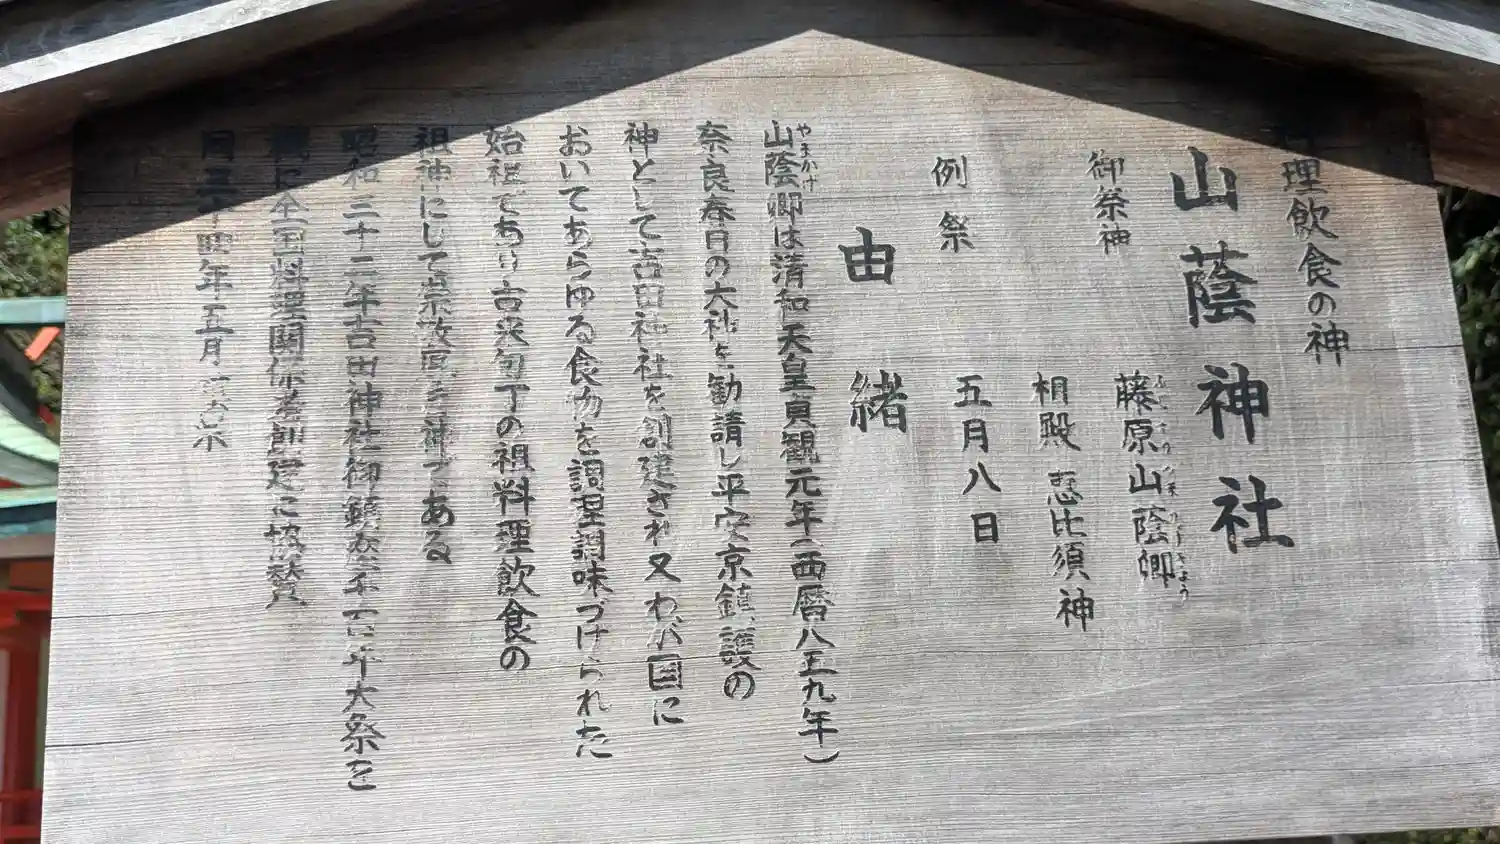 料理飲食の神
山蔭神社
御祭神 藤原山蔭卿
相殿 恵比須神
例祭 五月八日
由緒
山蔭卿は清和天皇貞観元年(西暦八五九年)
やまかげ
奈良春日の大神を勧請し平安京鎮護の
神として吉田神社を創建され又わが国に
おいてあらゆる食物を調理調味づけられた
始祖であり古来包丁の祖料理飲食の
祖神にして崇敬厚き神である
昭和三十二年吉田神社御鎮座千百年大祭を
機に全国料理関係者が建に協賛
同三十四年五月